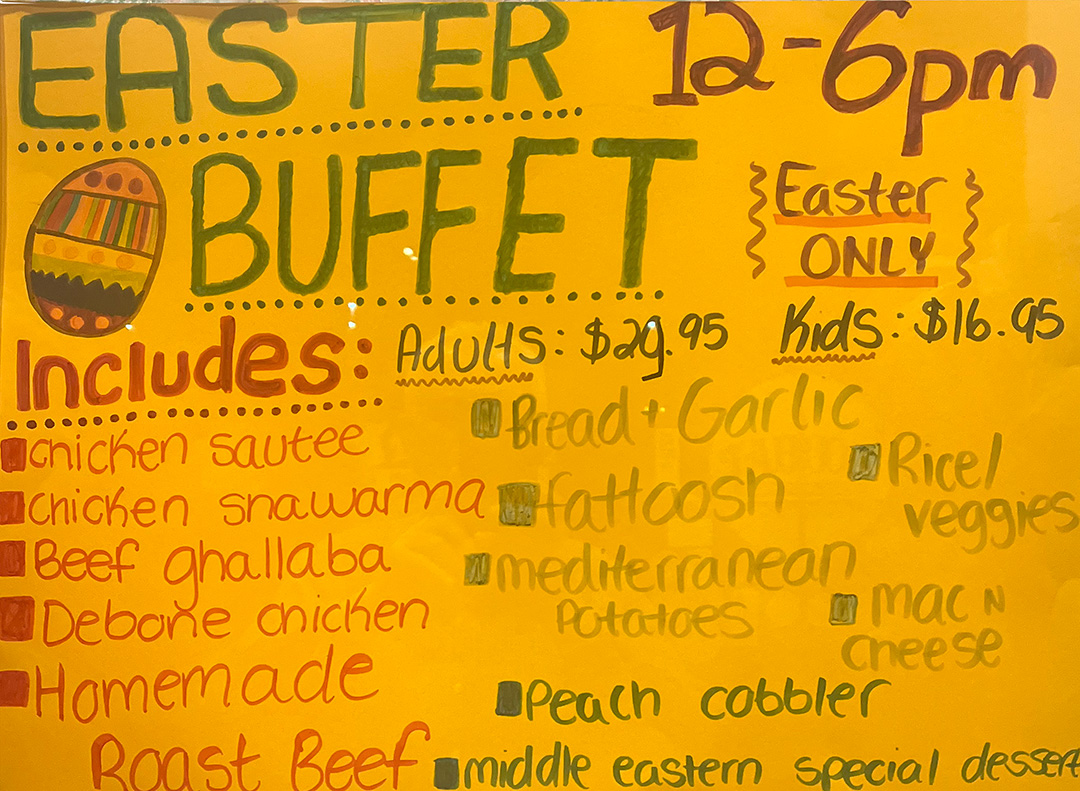 EASTER 12-6pm
BUFFET
Easter
ONLY
Includes: Adults: $29.95 Kids: $16.95
chicken sautee
chicken shawarma
Beef ghallaba
Debone chicken
Homemade
Roast Beef
Bread + Garlic
fattoosh
mediterranean
Potatoes
Rice/
veggies
mac N
cheese
Peach cobbler
middle eastern special dessert